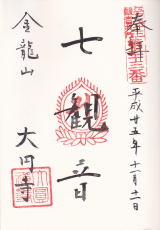 奉拝
平成廿五年十一月十一日
七観音
金龍山
大円寺